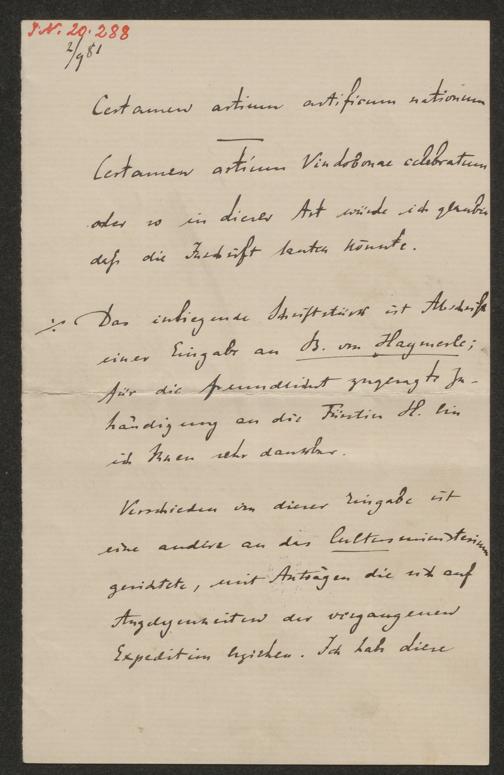 I.N. 20.288
2/9 81
Certamen artium artificum nationum
Certamen artium Vindobonae celebratum
oder so in dieser Art würde ich glauben
daß die Inschrift lauten könnte.
⁒ Das inliegende Schriftstück ist Abschrift
einer Eingabe an B. von Haymerle;
für die freundlichst zugesagte Zu-
händigung an die Fürstin H. bin
ich Ihnen sehr dankbar.
Verschieden von dieser Eingabe ist
eine andere an das Cultusministerium
gerichtete, mit Anträgen die sich auf
Angelegenheiten der vergangenen
Expedition beziehen. Ich habe diese